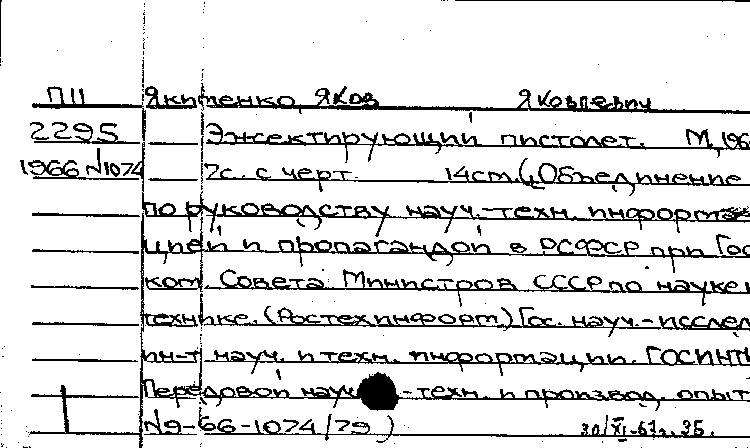 ПП Якименко, Яков Яковлевич
2295 Эжектирующий пистолет. М, 196
1966 №1074 7с. с черт. 14см. (Объединение
по руководству науч.-техн. информа
цией и пропагандой в РСФСР при Гос
ком. Совета Министров СССР по науке и
технике. (Ростехинформ) Гос. науч.-исслед
ин-т науч. и техн. информации. ГОСИНТИ
Передовой науч.-техн. и производ. опыт
№9-66-1074/79) 30/XI-67г. 35.